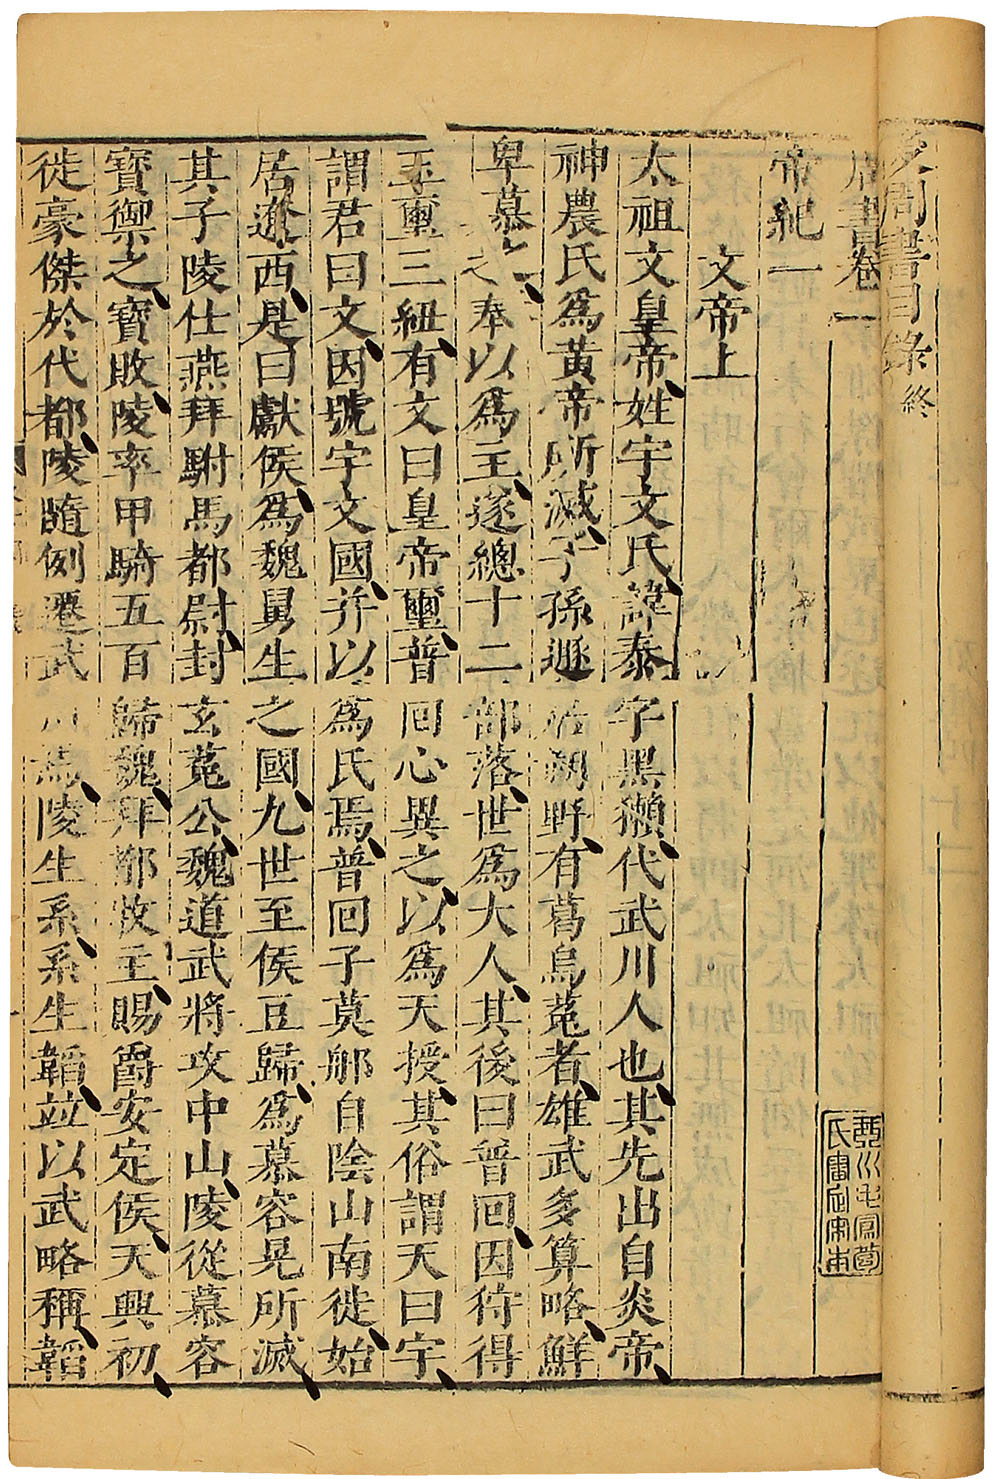 後周書目錄終
周書卷一
帝紀一
文帝上
太祖文皇帝姓宇文氏諱泰字黑獺代武川人也其先出自炎帝
神農氏爲黃帝所滅子孫遯居朔野有葛烏菟者雄武多算略鮮
卑慕之奉以爲主遂總十二部落世爲大人其後曰普回因狩得
玉璽三紐有文曰皇帝璽普回心異之以爲天授其俗謂天曰宇
謂君曰文因號宇文國并以爲氏焉普回子莫那自陰山南徙始
居遼西是曰獻侯爲魏舅生之國九世至侯豆歸爲慕容晃所滅
其子陵仕燕拜駙馬都尉封玄菟公魏道武將攻中山陵從慕容
寶禦之寶敗陵率甲騎五百歸魏拜都牧主賜爵安定侯天興初
徙豪傑於代都陵隨例遷武川焉陵生系系生韜竝以武略稱韜